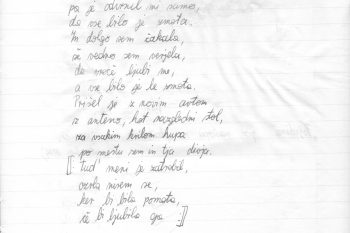 pa je odvrnil mi samo,
da vse bilo je zmota.
In dolgo sem čakala,
še vedno sem verjela,
da noče ljubi me,
a vse bilo je le zmota.
Prišel je z novim avtom
z anteno, kot razgledni stol,
za vsakim krilom hupa
po mestu sem in tja divja.
[: tud' meni je zatrobil,
ozrla nisem se,
ker bi bila pomota,
če bi ljubila ga. :]